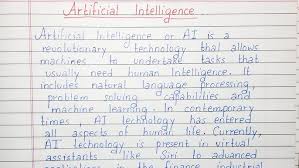 Artificial Intelligence
Artificial Intelligence or AI is a
revolutionary technology that allows
machines to undertake tasks that
usually need human Intelligence. It
includes natural language processing,
problem solving capabilities and
machine learning. In contemporary
times AI technology has entered
all aspects of human life. Currently,
AI technology is present in virtual
assistants like Siri to advanced
in the finance industrial